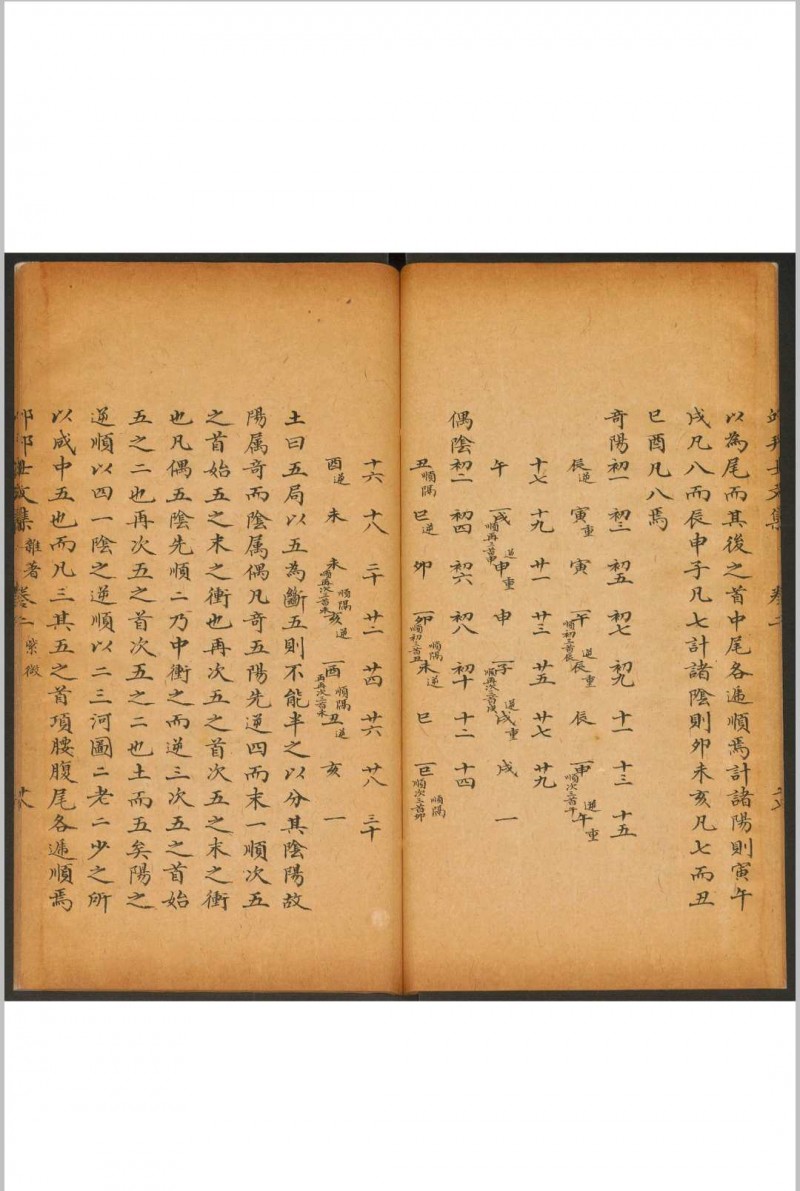 以為尾而其後之首中尾各遞順焉計諸陽則寅午
戌凡八而辰申子凡七計諸陰則卯未亥凡七而丑
巳酉凡八焉
奇陽初一 初三 初五 初七 初九 十一 十三 十五
辰逆 寅重 寅 午順初三首辰 辰逆重 辰 申順次三首午 午逆重
十七 十九 廿一 廿三 廿五 廿七 廿九
午 戌順再三首申 申逆重 申 子順再次三首戌 戌逆重 戌 一
偶陰初二 初四 初六 初八 初十 十二 十四
丑順隅 巳逆 卯 卯順初三首丑順隅 未逆 巳 巳順次三首卯順隅
十六 十八 二十 廿二 廿四 廿六 廿八 三十
酉逆 未 未順再次三首未順隅 亥逆 酉再再次三首未順隅 丑逆 亥 一
土曰五局以五為斷五則不能半之以分其陰陽故
陽属奇而陰属偶凡奇五陽先逆四而末一順次五
之首始五之末之衝也再次五之首次五之末之衝
也凡偶五陰先順二乃中衝之而逆三次五之首始
五之二也再次五之首次五之二也土而五矣陽之
逆順以四一陰之逆順以二三河圖二老二少之所
以成中五也而凡三其五之首項腰腹尾各遞順焉
文集 雜著 卷二 紫微 廿八